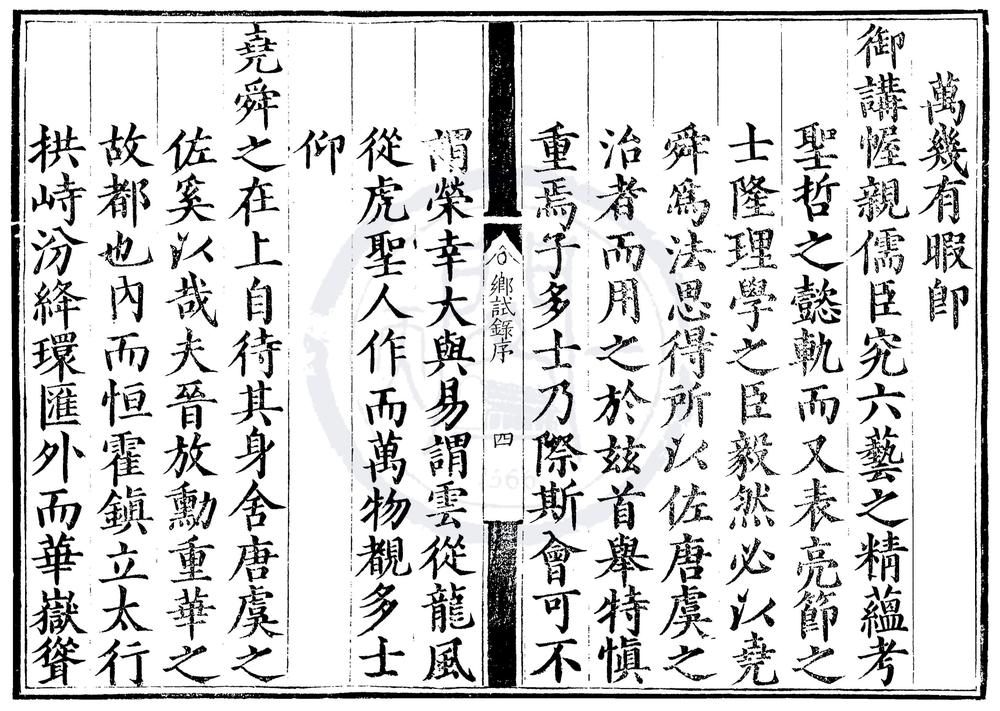 萬幾有暇卽
御講幄親儒臣究六藝之精蘊考
聖哲之懿軌而又表亮節之
士隆理學之臣毅然必以堯
舜爲法思得所以佐唐虞之
治者而用之於兹首舉特慎
重焉子多士乃際斯會可不
鄉試錄序
四
謂榮幸大與易謂雲從龍風
從虎聖人作而萬物覩多士
仰
堯舜之在上自待其身舍唐虞之
佐奚以哉夫晉放勳重華之
故都也內而恒霍鎮立太行
拱峙汾絳環匯外而華嶽聳